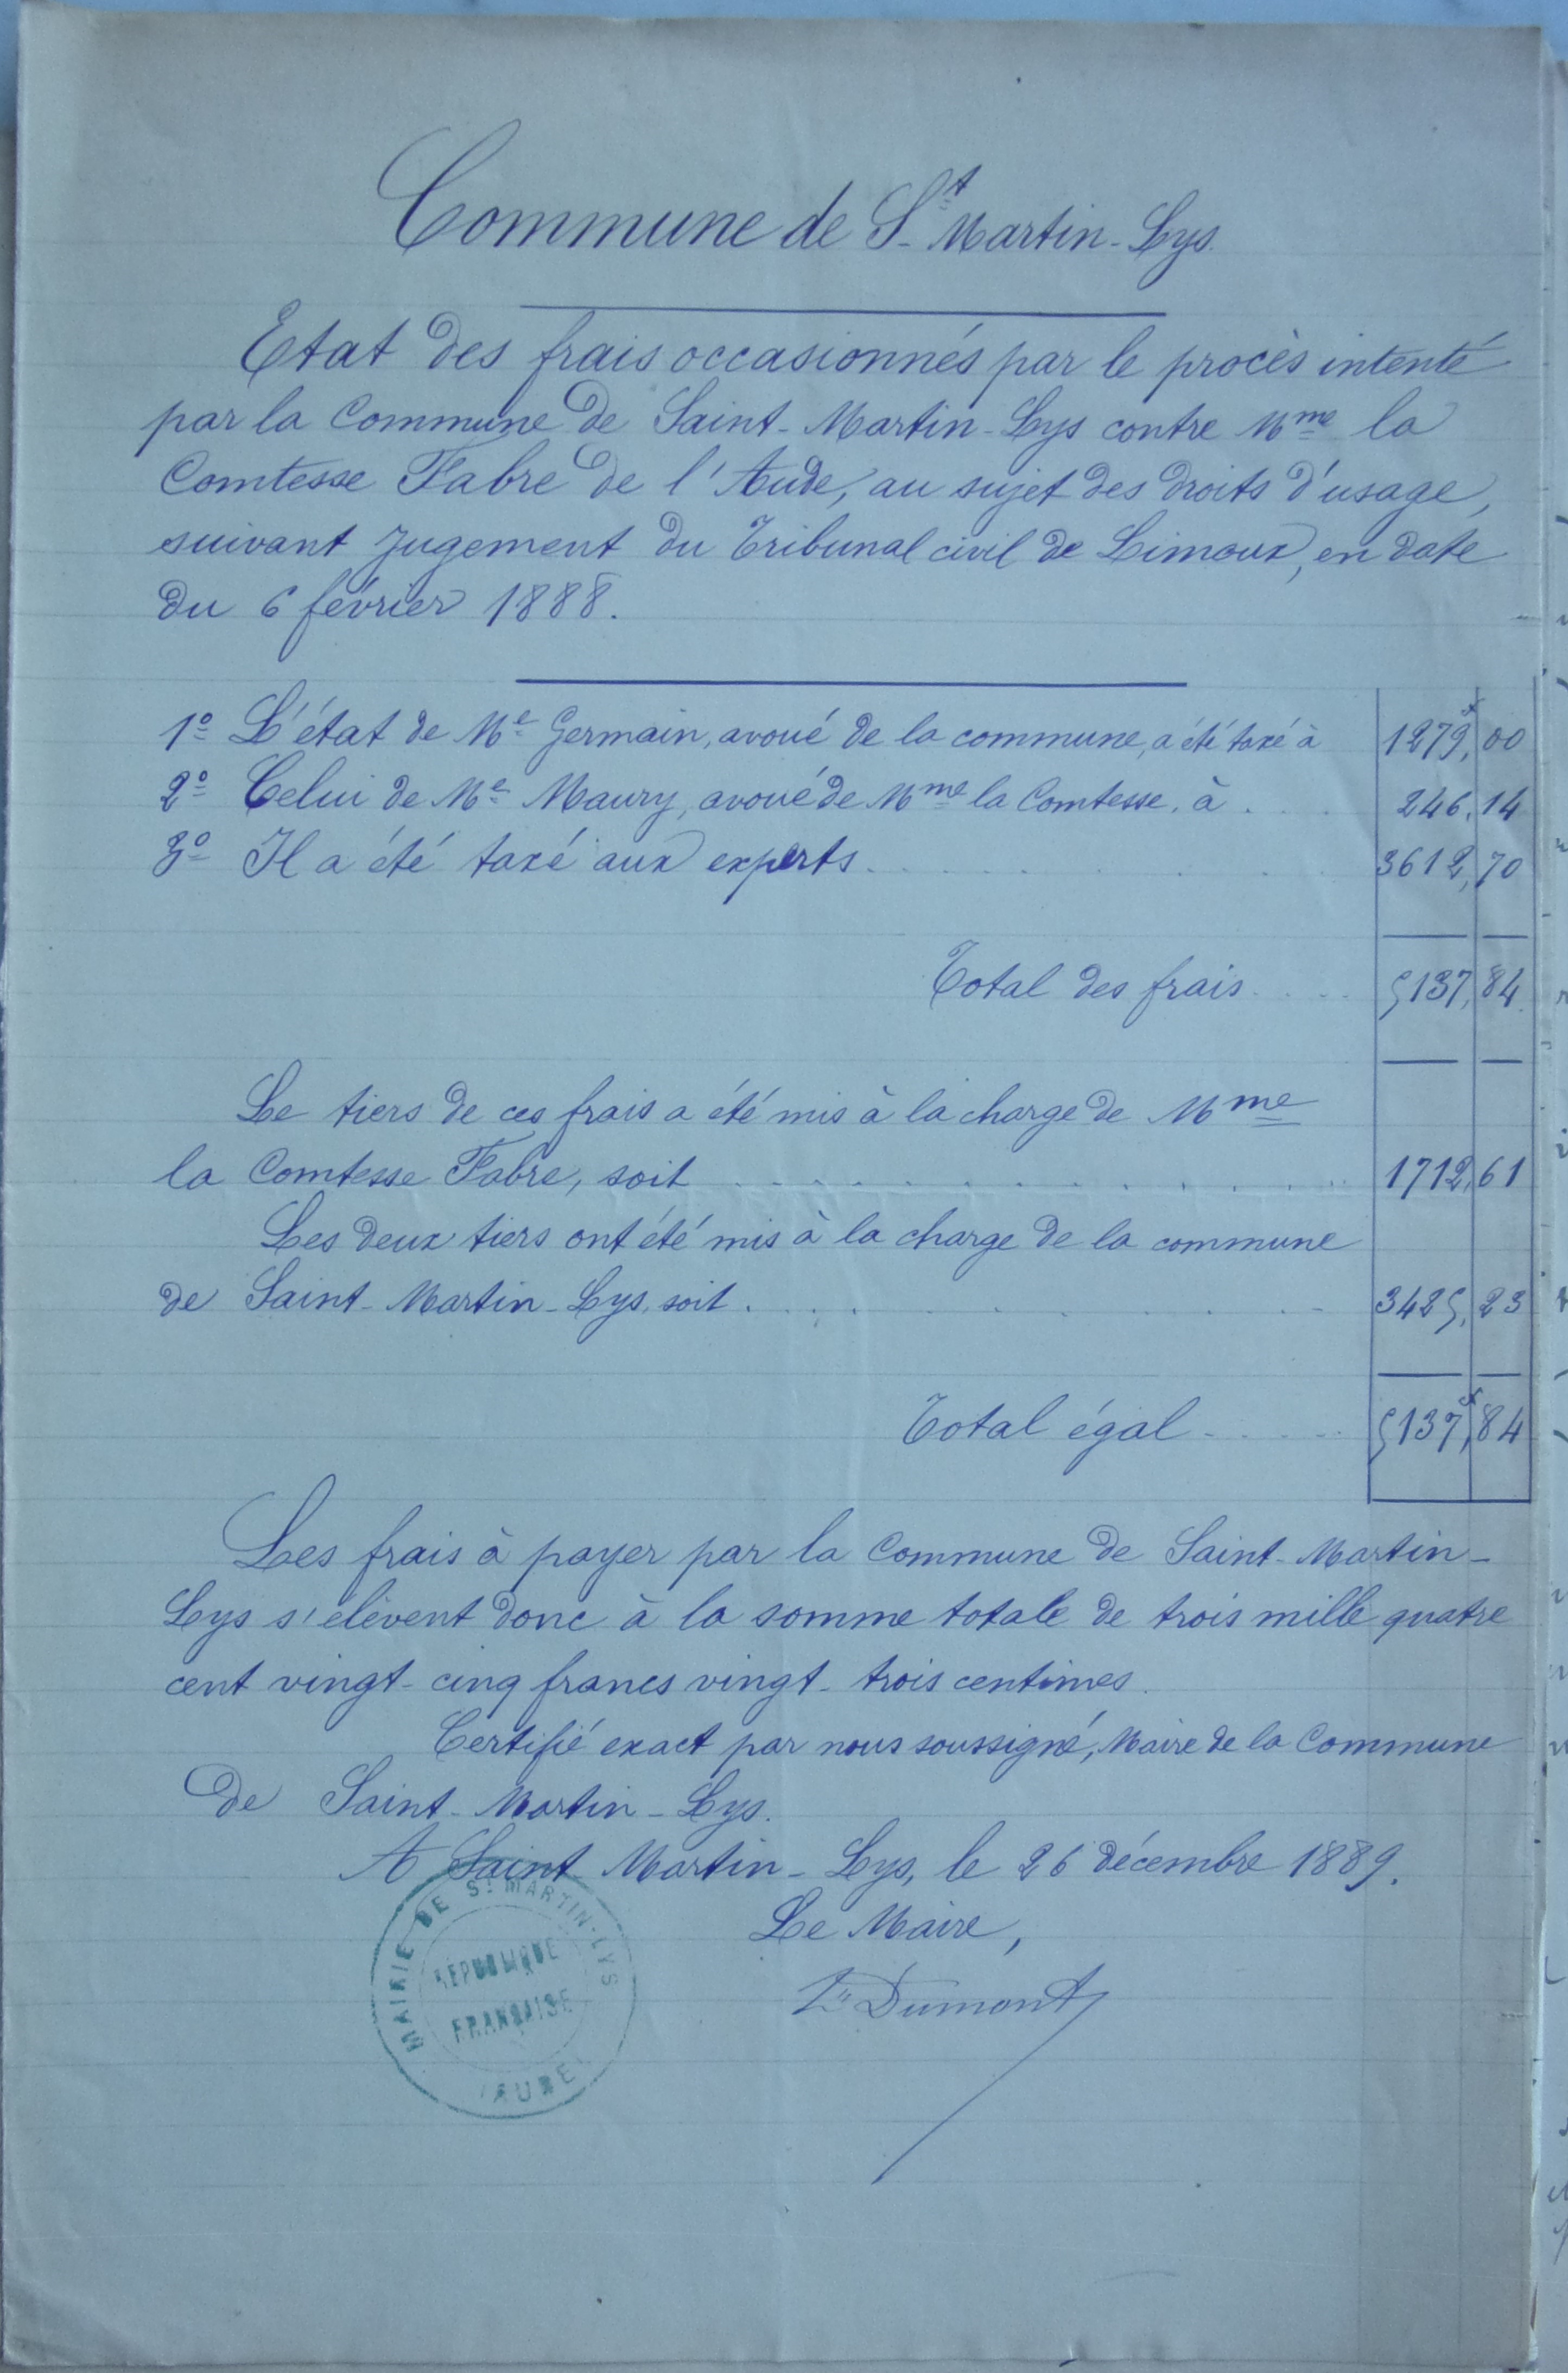 Commune de St Martin-Lys.
Etat des frais occasionnés par le procès intenté
par la Commune de Saint-Martin-Lys contre Mme la
Comtesse Fabre de l'Aude, au sujet des droits d'usage,
suivant jugement du Tribunal civil de Limoux, en date
du 6 février 1888.
1º L'état de Me Germain, avoué de la commune, a été taxé à 1279f,00
2º Celui de Me Maury, avoué de Mme la Comtesse, à . . . 246,14
3º Il a été taxé aux experts . . . . . . . 3612,70
Total des frais . . . . 5137,84
Le tiers de ces frais a été mis à la charge de Mme
la Comtesse Fabre, soit . . . . . . . . . . . 1712,61
Les deux tiers ont été mis à la charge de la commune
de Saint-Martin-Lys, soit . . . . . . . . . . 3425,23
Total égal . . . . 5137f,84
Les frais à payer par la Commune de Saint-Martin-
Lys s'élèvent donc à la somme totale de trois mille quatre
cent vingt-cinq francs vingt-trois centimes.
Certifié exact par nous soussigné, Maire de la Commune
de Saint-Martin-Lys.
A Saint Martin-Lys, le 26 décembre 1889.
Le Maire,
Dumont
MAIRIE DE St MARTIN-LYS
RÉPUBLIQUE
FRANÇAISE
(AUDE)